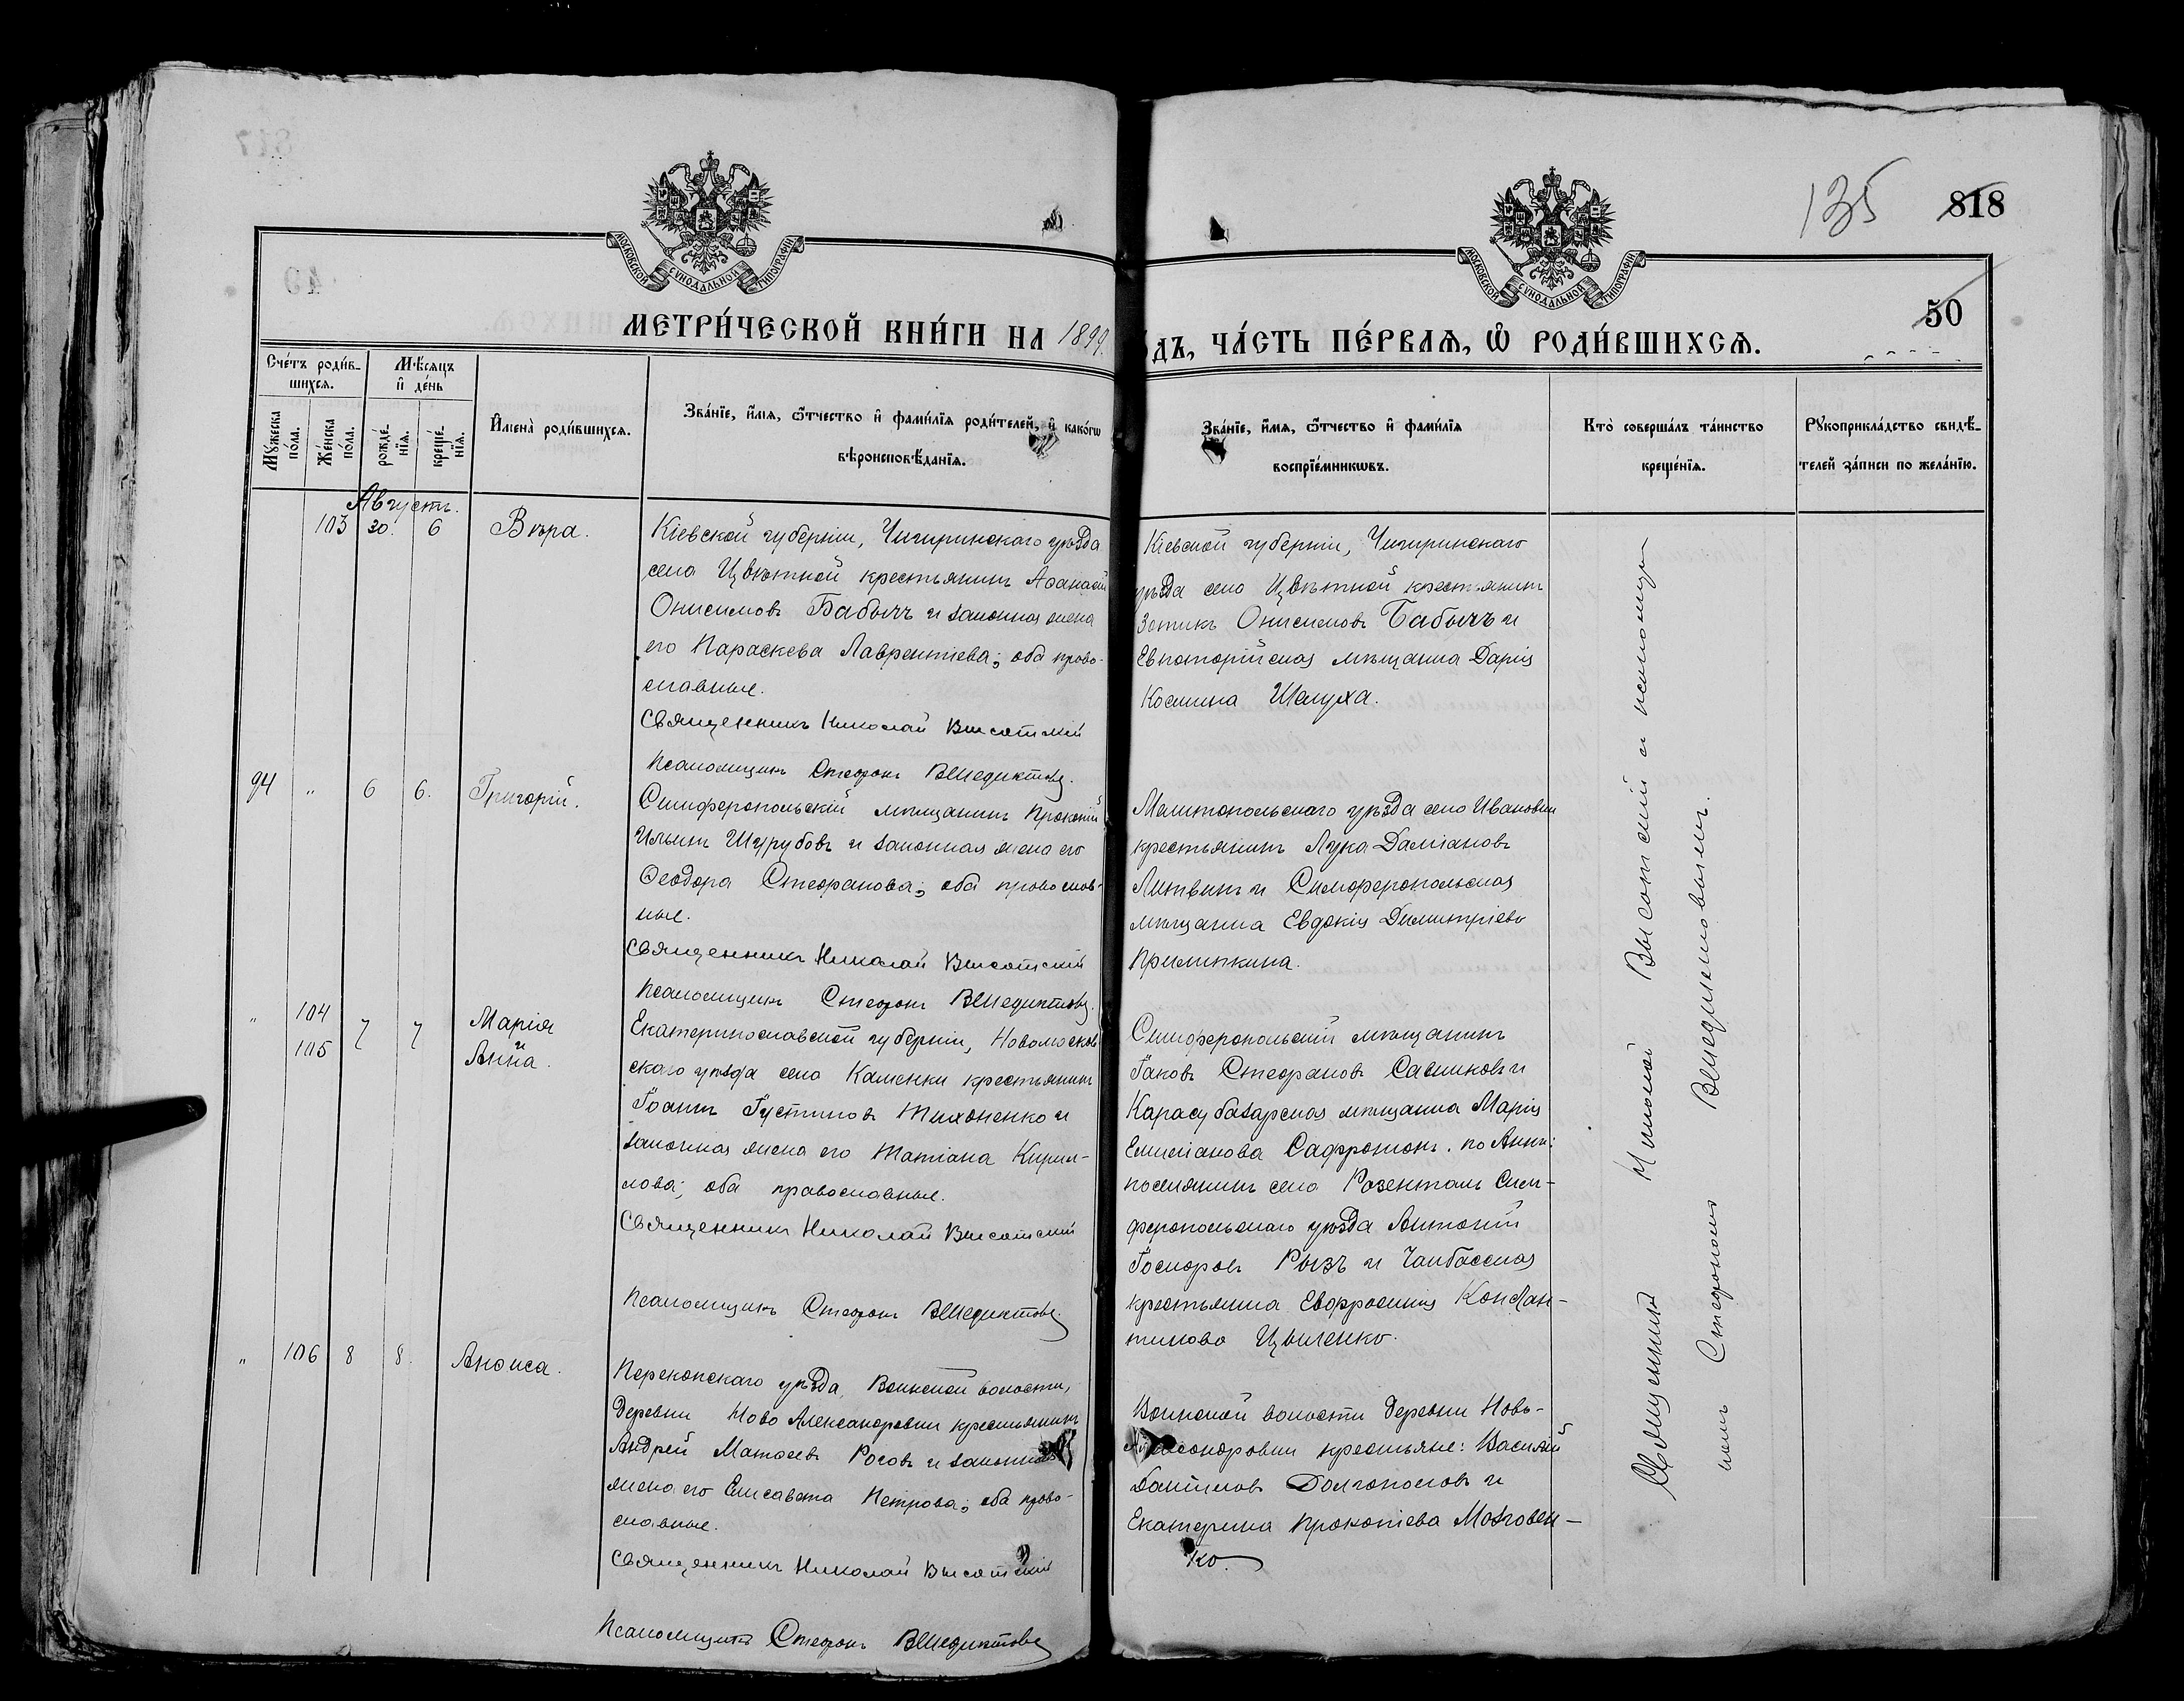 135
818
50
МОСКОВСКОЙ СѴНОДАЛЬНОЙ ТИПОГРАФІИ
МОСКОВСКОЙ СѴНОДАЛЬНОЙ ТИПОГРАФІИ
МЕТРИ́ЧЕСКОЙ КНИ́ГИ НА 1899.
ДЪ, ЧА́СТЬ ПЕ́РВАѦ, Ѡ҆ РОДИ́ВШИХСѦ.
Сче́тъ роди́в-
шихсѧ.
Мѣ́сѧцъ
и҆ де́нь
Мꙋ́жеска
по́ла.
Же́нска
по́ла.
рожде́-
нїѧ.
креще́-
нїѧ.
И҆мена̀ роди́вшихсѧ.
Зва́нїе, и҆́мѧ, ѻ҆́тчество и҆ фами́лїѧ роди́телей, и҆ како́гѡ
вѣроисповѣ́данїѧ.
Зва́нїе, и҆́мѧ, ѻ҆́тчество и҆ фами́лїѧ
воспрїе́мникѡвъ.
Кто̀ соверша́лъ та́инство
креще́нїѧ.
Рꙋкоприкла́дство свидѣ́-
телей за́писи по жела́нїю.
Августъ.
103 30. 6 Вѣра.
Кіевской губерніи, Чигиринскаго уѣзда
села Цвѣтной крестьянинъ Аѳанасій
Онисимовъ Бабычъ и законная жена
его Параскева Лаврентіева; оба право-
славные.
Священникъ Николай Высотскій
Псаломщикъ Стефанъ Венедиктовъ.
Кіевской губерніи, Чигиринскаго
уѣзда села Цвѣтной крестьянинъ
Зотикъ Онисимовъ Бабычъ и
Евпаторійская мѣщанка Дарія
Космина Шелуха.
94 " 6 6. Григорій.
Симферопольскій мѣщанинъ Прокопій
Ильинъ Шурубовъ и законная жена его
Ѳеодора Стефанова; оба православ-
ные.
Священникъ Николай Высотскій
Псаломщикъ Стефанъ Венедиктовъ.
Мелитопольскаго уѣзда села Ивановки
крестьянинъ Лука Даміановъ
Литвинъ и Симферопольская
мѣщанка Евдокія Димитріева
Прилипкина.
" 104 7 7 Марія
и
105 Анна.
Екатеринославской губерніи, Новомосков
скаго уѣзда села Каменки крестьянинъ
Іоаннъ Іустиновъ Тихоненко и
законная жена его Татіана Кирил-
лова; оба православные.
Священникъ Николай Высотскій
Псаломщикъ Стефанъ Венедиктовъ.
Симферопольскій мѣщанинъ
Іаковъ Стефановъ Савинковъ и
Карасубазарская мѣщанка Марія
Емиліанова Сафронюкъ. по Аннѣ:
поселянинъ села Розенталь Сим-
феропольскаго уѣзда Антоній
Іосифовъ Рызъ и
крестьянка Евфросинія Констан-
тинова Цыленко.
" 106 8 8. Анѳиса.
Перекопскаго уѣзда, Воинской волости,
деревни Ново Александровки крестьянинъ
Андрей Матѳеевъ Роговъ и законная
жена его Елисавета Петрова; оба право-
славные.
Священникъ Николай Высотскій
Псаломщикъ Стефанъ Венедиктовъ
Воинской волости деревни Ново-
Александровки крестьяне: Василій
Долгополовъ и
Екатерина Прокопіева Мозговен-
ко.
Священникъ Николай Высотскій съ псаломщи-
комъ Стефаномъ Венедиктовымъ.